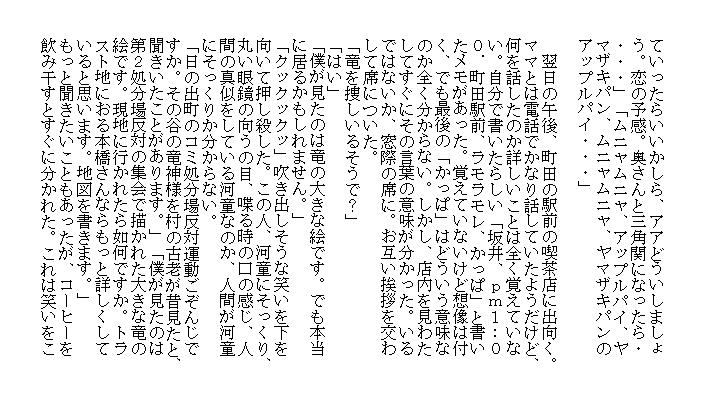 ていったらいいかしら、アアどういしましょ
う。恋の予感。奥さんと三角関になったら・
・・・」「ムニャムニャ、アップルパイ、ヤ
マザキパン、ムニャムニャ、ヤマザキパンの
アップルパイ・・・」
翌日の午後、町田の駅前の喫茶店に出向く。
ママとは電話でかなり話していたようだけど、
何を話したのか詳しいことは全く覚えていな
い。自分で書いたらしい「坂井、pm1:0
0、町田駅前、ラモラモレ、かっぱ」と書い
たメモがあった。覚えていないけど想像は付
く、でも最後の「かっぱ」はどういう意味な
のか全く分からない。しかし、店内を見わた
してすぐにその言葉の意味が分かった。いる
ではないか、窓際の席に。お互い挨拶を交わ
して席についた。
「竜を捜しいるそうで?」
「はい」
「僕が見たのは竜の大きな絵です。でも本当
に居るかもしれません。」
「クックックッ」吹き出しそうな笑いを下を
向いて押し殺した。この人、河童にそっくり、
丸い眼鏡の向うの目、喋る時の口の感じ、人
間の真似をしている河童なのか、人間が河童
にそっくりか分からない。
「日の出町のコミ処分場反対運動ごぞんじで
すか。その谷の竜神様を村の古老が昔見たと、
聞いたことがあります。」「僕が見たのは
第2処分場反対の集会で描かれた大きな竜の
絵です。現地に行かれたら如何ですか。トラ
スト地におる本橋さんならもっと詳しくして
いると思います。地図を書きます。」
もっと聞きたいこともあったが、コーヒーを
飲み干すとすぐに分かれた。これは笑いをこ